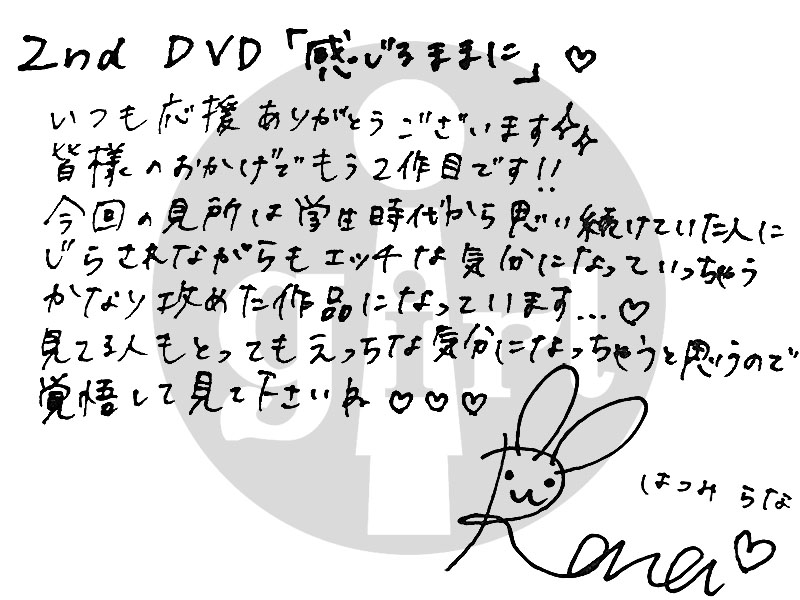 2nd DVD「感じるままに」♡
いつも応援ありがとうございます☆☆
皆様のおかげでもう2作目です!!
今回の見所は学生時代から思い続けていた人に
じらされながらもエッチな気分になっていっちゃう
かなり攻めた作品になっています...♡
見てる人もとってもえっちな気分になっちゃうと思うので
覚悟して見て下さいね♡♡♡
はつみ らな
Rana♡
i girl